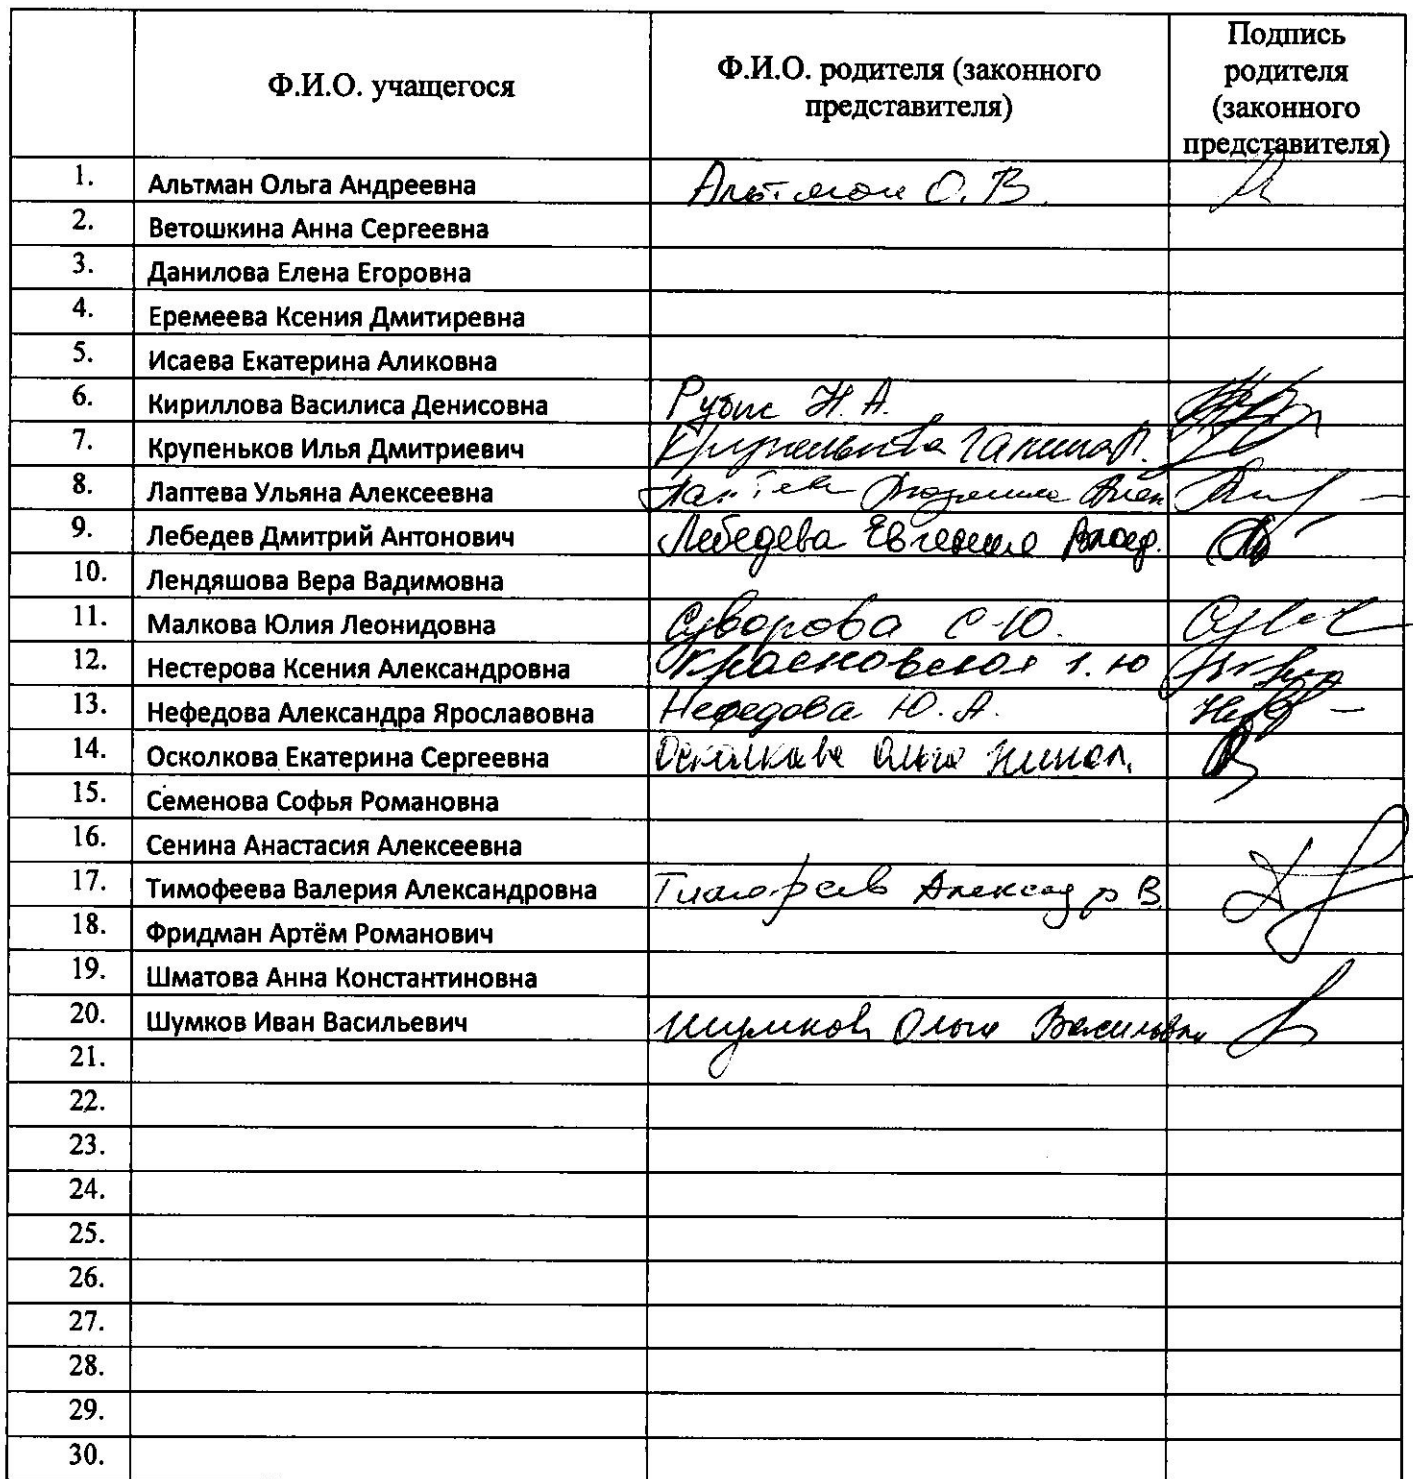 Ф.И.О. учащегося
Ф.И.О. родителя (законного
представителя)
Подпись
родителя
(законного
представителя)
1. Альтман Ольга Андреевна Альтман О. В.
2. Ветошкина Анна Сергеевна
3. Данилова Елена Егоровна
4. Еремеева Ксения Дмитиревна
5. Исаева Екатерина Аликовна
6. Кириллова Василиса Денисовна Рубис Н. А.
7. Крупеньков Илья Дмитриевич Крупенькова Галина
8. Лаптева Ульяна Алексеевна
9. Лебедев Дмитрий Антонович Лебедева Евгения Влад.
10. Лендяшова Вера Вадимовна
11. Малкова Юлия Леонидовна Суворова С.Ю.
12. Нестерова Ксения Александровна Красновская Т. Ю
13. Нефедова Александра Ярославовна Нефедова Ю. А.
14. Осколкова Екатерина Сергеевна Осколкова Ольга
15. Семенова Софья Романовна
16. Сенина Анастасия Алексеевна
17. Тимофеева Валерия Александровна Тимофеев Александр В.
18. Фридман Артём Романович
19. Шматова Анна Константиновна
20. Шумков Иван Васильевич Шумков Ольга Васильевна
21.
22.
23.
24.
25.
26.
27.
28.
29.
30.